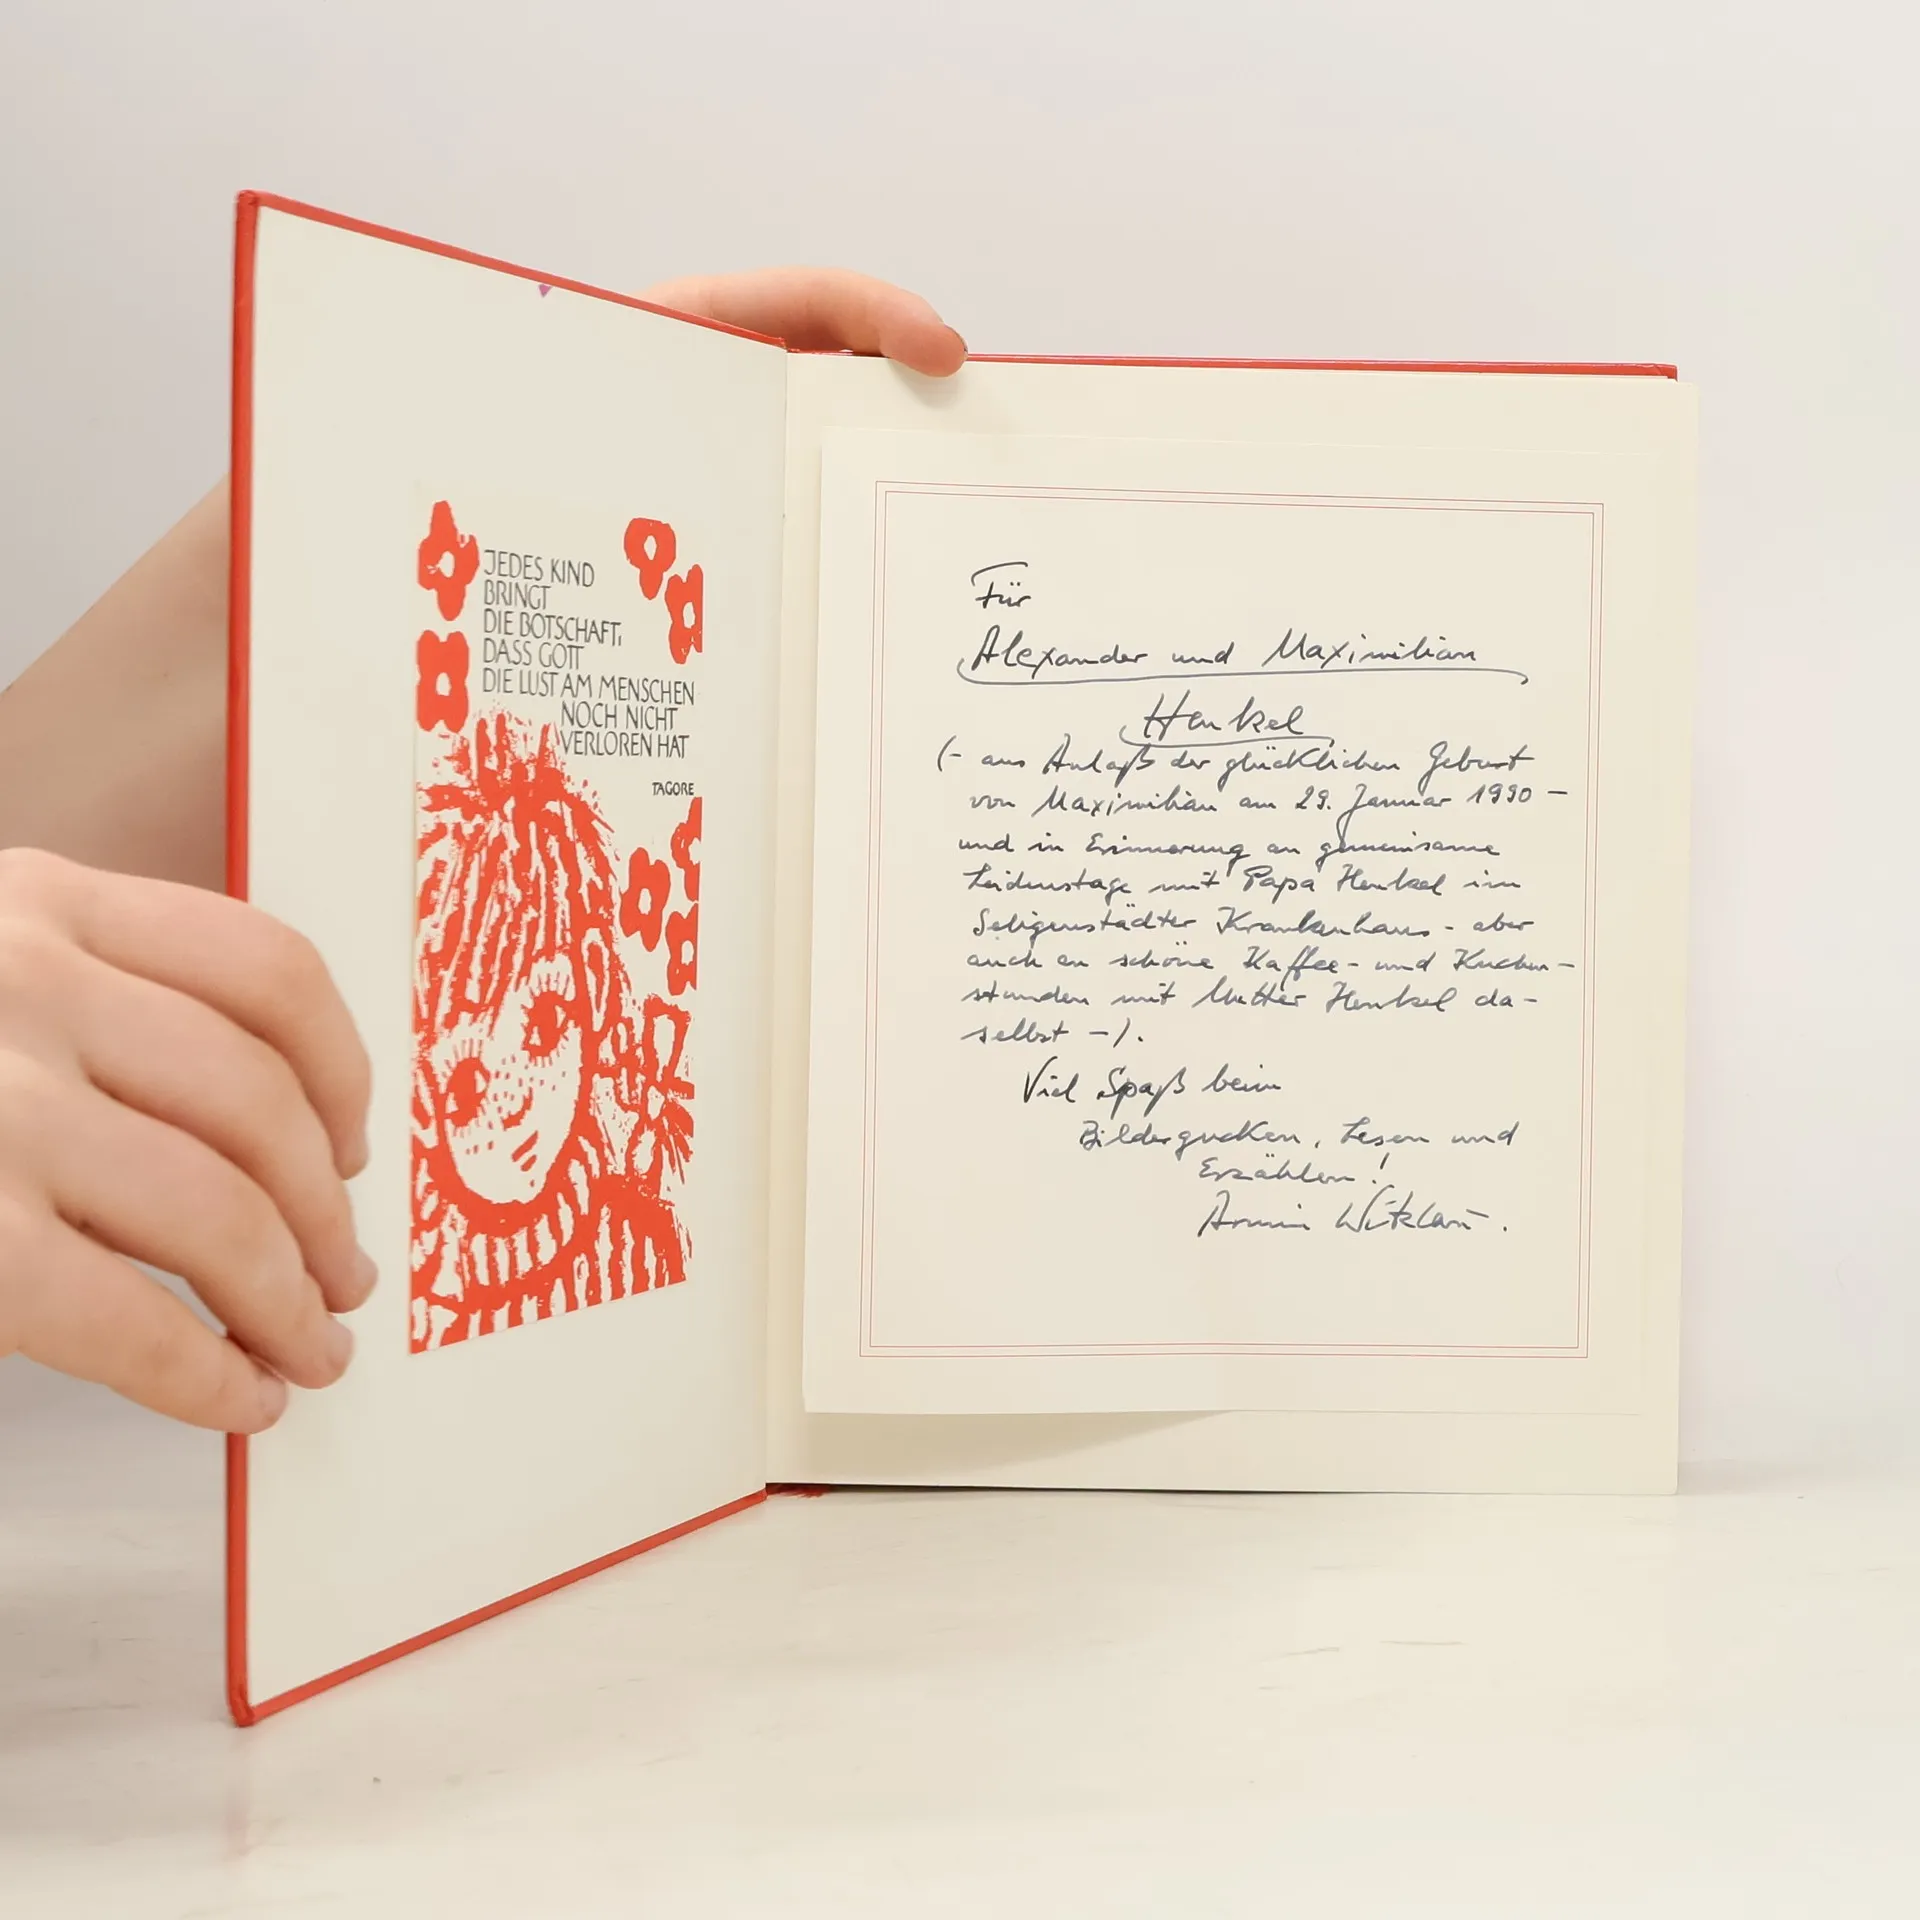 JEDES KIND
BRINGT
DIE BOTSCHAFT,
DASS GOTT
DIE LUST AM MENSCHEN
NOCH NICHT
VERLOREN HAT
TAGORE
Für
Alexander und Maximilian
Henkel
(- aus Anlaß der glücklichen Geburt
von Maximilian am 29. Januar 1990 -
und in Erinnerung an gemeinsame
Leidenstage mit Papa Henkel im
Seligenstädter Krankenhaus - aber
auch an schöne Kaffee- und Kuchen-
stunden mit Mutter Henkel da-
selbst -).
Viel Spaß beim
Bildergucken, Lesen und
Erzählen!
Armin